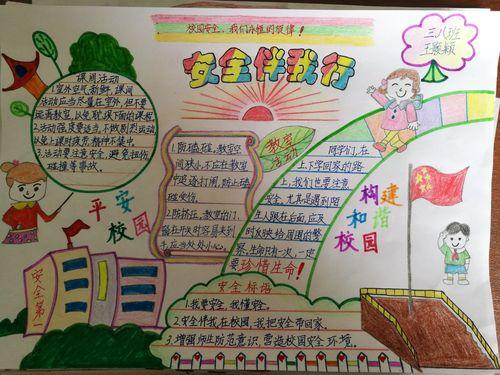 校园安全,我们永恒的旋律!
三八班
安全伴我行
课间活动
1.室外空气新鲜,课间
活动应当尽量在室外,但不要
远离教室,以免耽误下面的课程
2.活动强度要适当,不做剧烈运动
以免上课时疲劳,精神不集中
3.活动要注意安全,避免扭伤
碰撞等事故。
教室
活动
1.防磕碰。教室空
间狭小,不应在教室
中追逐打闹,防止磕
碰受伤。
2.防挤压。教室的门、
窗在开关时容易夹到
手,应当处处小心。
同学们,在
上、下学回家的路
上,我们也要注意
安全。尤其是遇到陌
生人跟在后面,应及
时反映给周围的警
察,生命只有一次,一定
要珍惜生命!
平安
校园
构建
和谐
校园
安全第一
安全标语
1.我要安全,我懂安全。
2.安全伴我在校园,我把安全带回家。
3.增强师生防范意识,营造校园安全环境。